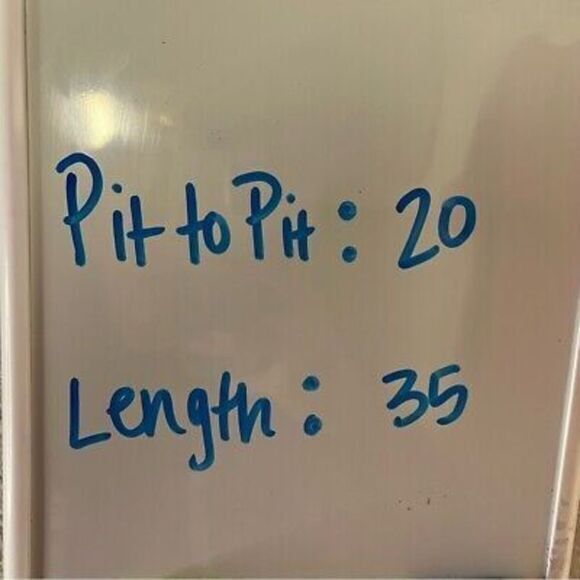 Pit to Pit: 20
Length: 35